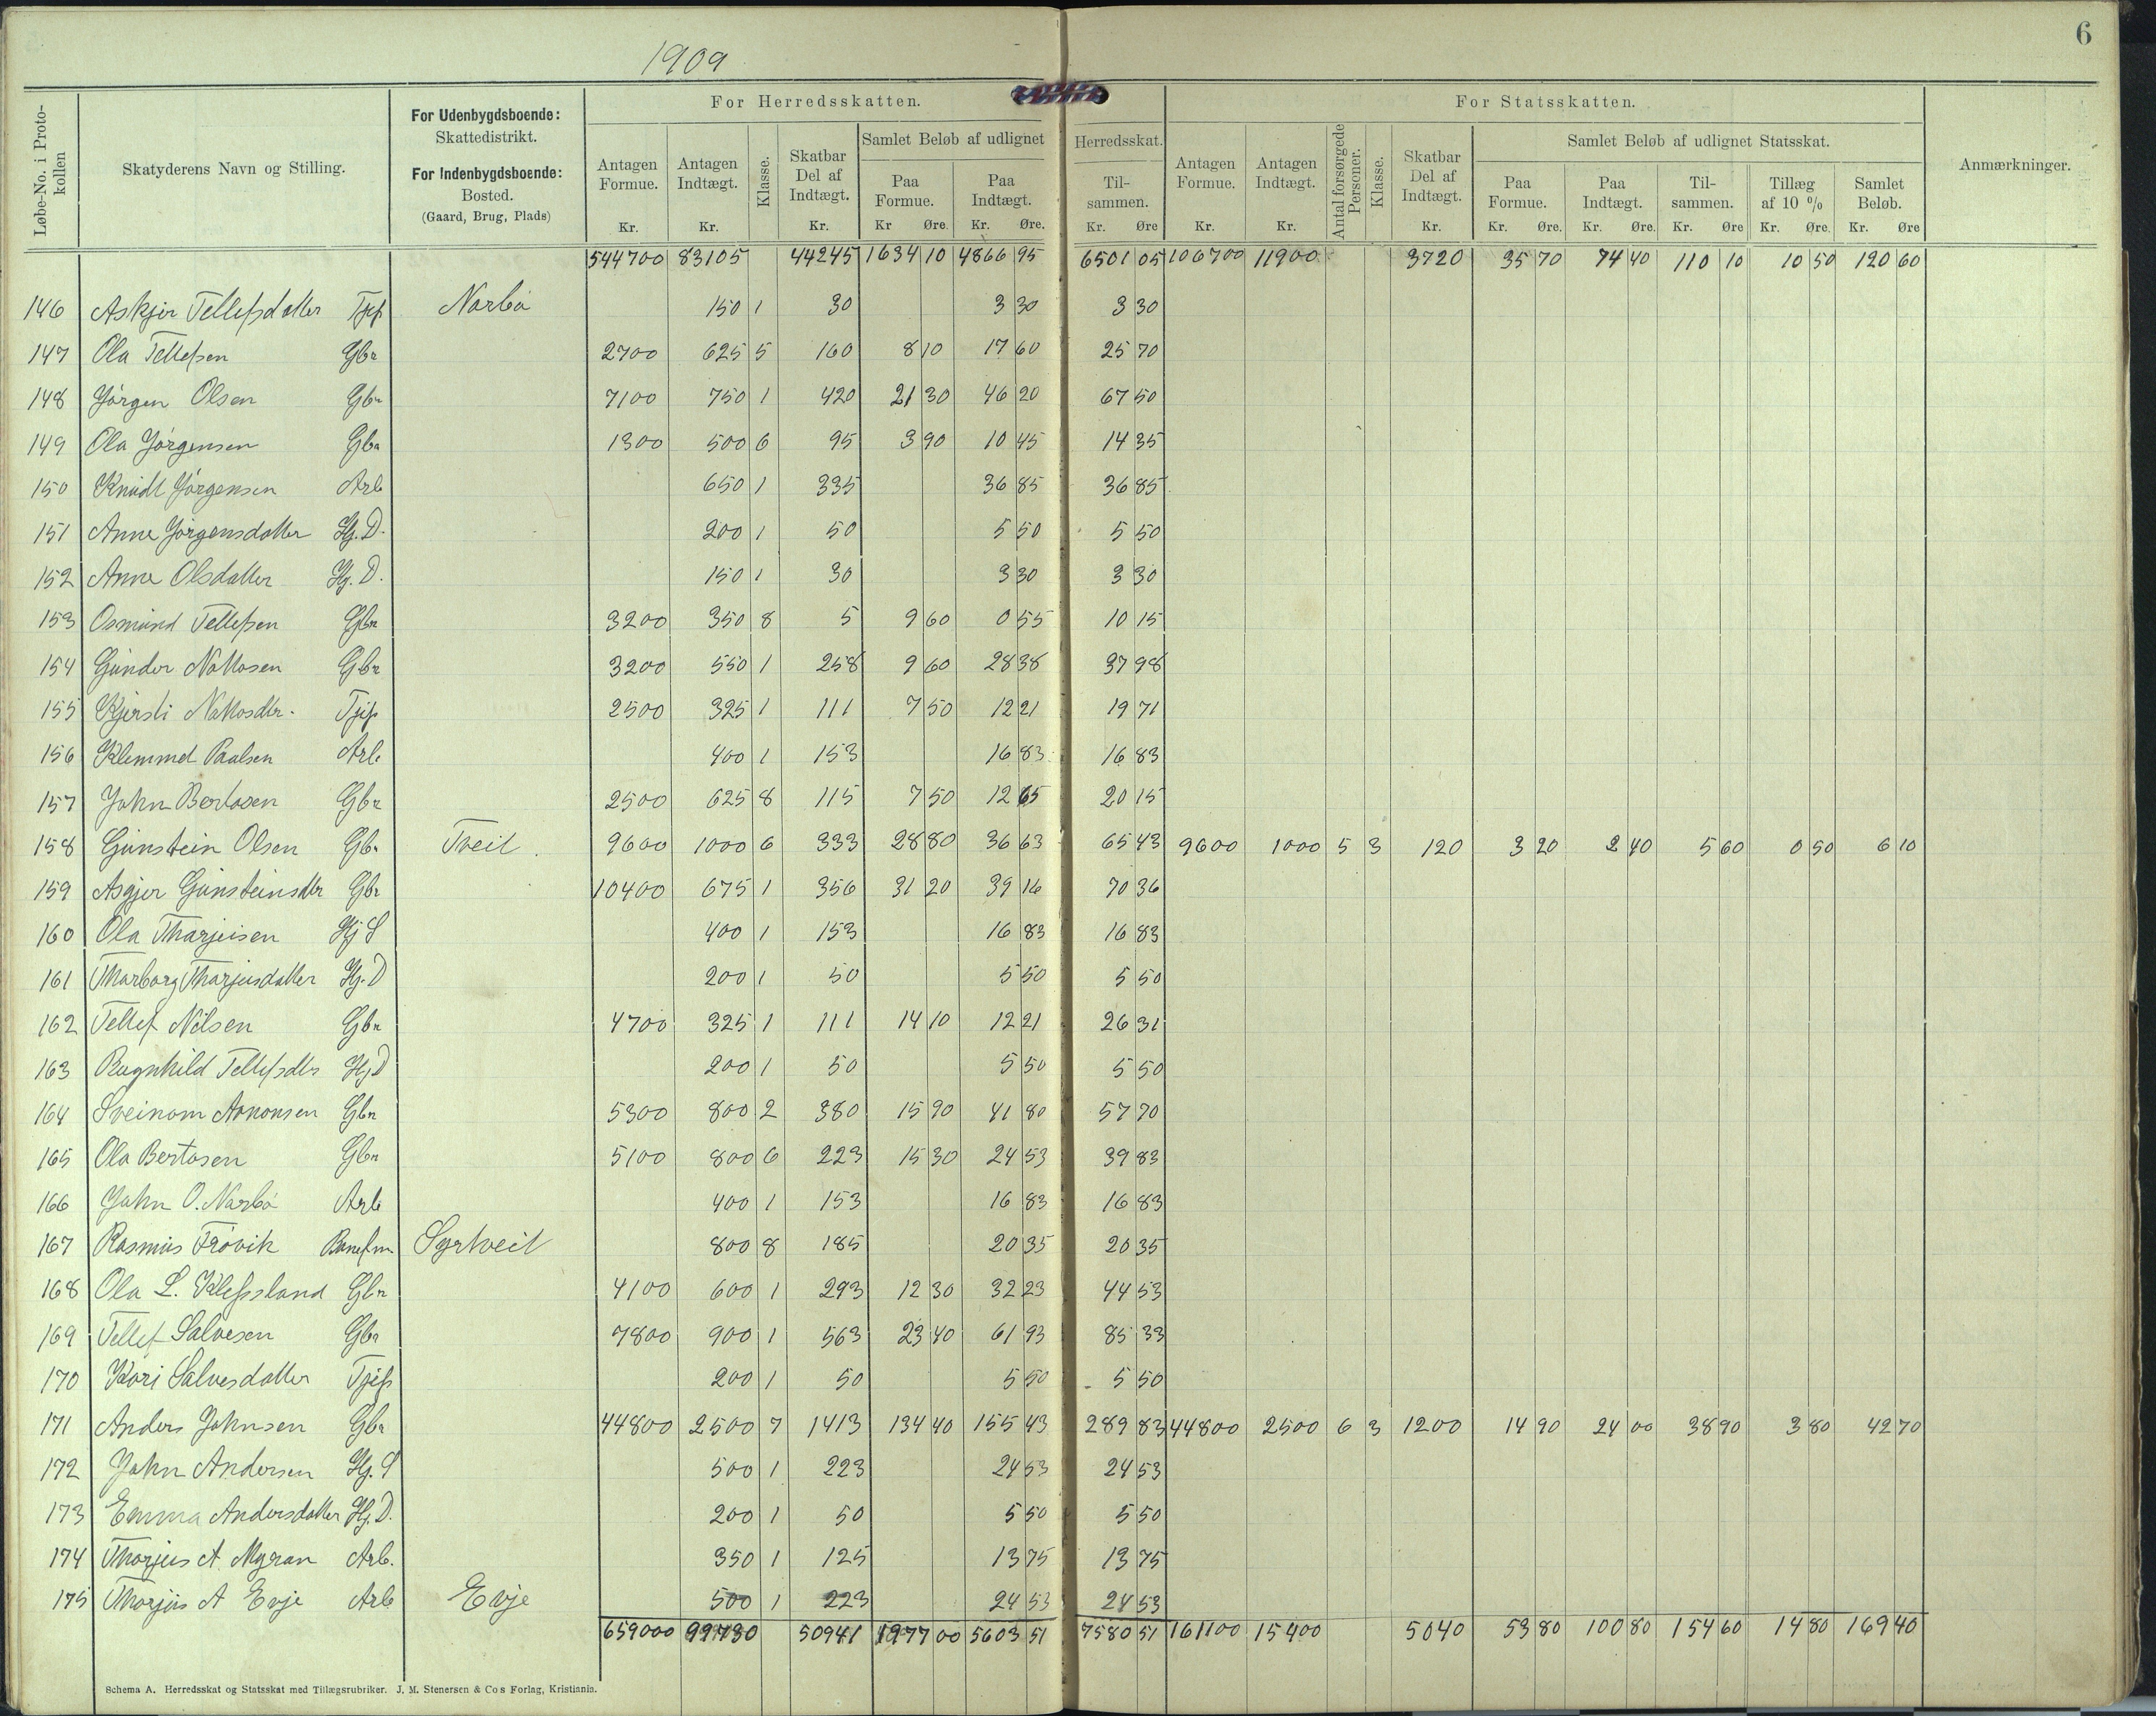 1909
6
Løbe-No. i Proto-kollen
Skatyderens Navn og Stilling.
For Udenbygdsboende:
Skattedistrikt.
For Indenbygdsboende:
Bosted.
(Gaard, Brug, Plads)
For Herredsskatten.
Antagen Formue. Kr.
Antagen Indtægt. Kr.
Klasse.
Skatbar Del af Indtægt. Kr.
Samlet Beløb af udlignet Herredsskat.
Paa Formue. Kr Øre.
Paa Indtægt. Kr. Øre.
Til-sammen. Kr. Øre
For Statsskatten.
Antagen Formue. Kr.
Antagen Indtægt. Kr.
Antal forsørgede Personer.
Klasse.
Skatbar Del af Indtægt. Kr.
Samlet Beløb af udlignet Statsskat.
Paa Formue. Kr. Øre.
Paa Indtægt. Kr. Øre.
Til-sammen. Kr. Øre
Tillæg af 10 % Kr. Øre.
Samlet Beløb. Kr. Øre
Anmærkninger.
544700 83105 44245 1634 10 4866 95 6501 05 106700 11900 3720 35 70 74 40 110 10 10 50 120 60
146 Askjer Tellefsdatter Tjp Narbø 150 1 30 3 30 3 30
147 Ola Tellefsen Gbr 2700 625 5 160 8 10 17 60 25 70
148 Jørgen Olsen Gbr 7100 750 1 420 21 30 46 20 67 50
149 Ola Jørgensen Gbr 1300 500 6 95 3 90 10 45 14 35
150 Knudt Jørgensen Arb 650 1 335 36 85 36 85
151 Anne Jørgensdatter Hj. D. 200 1 50 5 50 5 50
152 Anne Olsdatter Hj. D. 150 1 30 3 30 3 30
153 Osmund Tellefsen Gbr 3200 350 8 5 9 60 0 55 10 15
154 Gunder Nottosen Gbr 3200 550 1 258 9 60 28 38 37 98
155 Kjersti Nottosdtr. Tjp 2500 325 1 111 7 50 12 21 19 71
156 Klemmet Paalsen Arb 400 1 153 16 83 16 83
157 John Bertosen Gbr 2500 625 8 115 7 50 12 65 20 15
158 Gunstein Olsen Gbr Tveit 9600 1000 6 333 28 80 36 63 65 43 9600 1000 5 3 120 3 20 2 40 5 60 0 50 6 10
159 Asgjer Gunsteinsdtr Gbr 10400 675 1 356 31 20 39 16 70 36
160 Ola Tharjeisen Hj S 400 1 153 16 83 16 83
161 Tharborg Tharjusdatter Hj. D 200 1 50 5 50 5 50
162 Tellef Nilsen Gbr 4700 325 1 111 14 10 12 21 26 31
163 Ragnhild Tellefsdtr Hj D 200 1 50 5 50 5 50
164 Sveinom Aanonsen Gbr 5300 800 2 380 15 90 41 80 57 70
165 Ola Bertosen Gbr 5100 800 6 223 15 30 24 53 39 83
166 John O. Narbø Arb 400 1 153 16 83 16 83
167 Rasmus Frøvik Banefm Syrtveit 800 8 185 20 35 20 35
168 Ola L. Klepsland Gbr 4100 600 1 293 12 30 32 23 44 53
169 Tellef Salvesen Gbr 7800 900 1 563 23 40 61 93 85 33
170 Kari Salvesdatter Tjp 200 1 50 5 50 5 50
171 Anders Johnsen Gbr 44800 2500 7 1413 134 40 155 43 289 83 44800 2500 6 3 1200 14 90 24 00 38 90 3 80 42 70
172 John Andersen Hj. S 500 1 223 24 53 24 53
173 Emma Andersdatter Hj. D. 200 1 50 5 50 5 50
174 Thorjus A. Myran Arb. 350 1 125 13 75 13 75
175 Thorjus A Evje Arb Evje 500 1 223 24 53 24 53
659000 99730 50941 1977 00 5603 51 7580 51 161100 15400 5040 53 80 100 80 154 60 14 80 169 40
Schema A. Herredsskat og Statsskat med Tillægsrubriker. J. M. Stenersen & Co s Forlag, Kristiania.